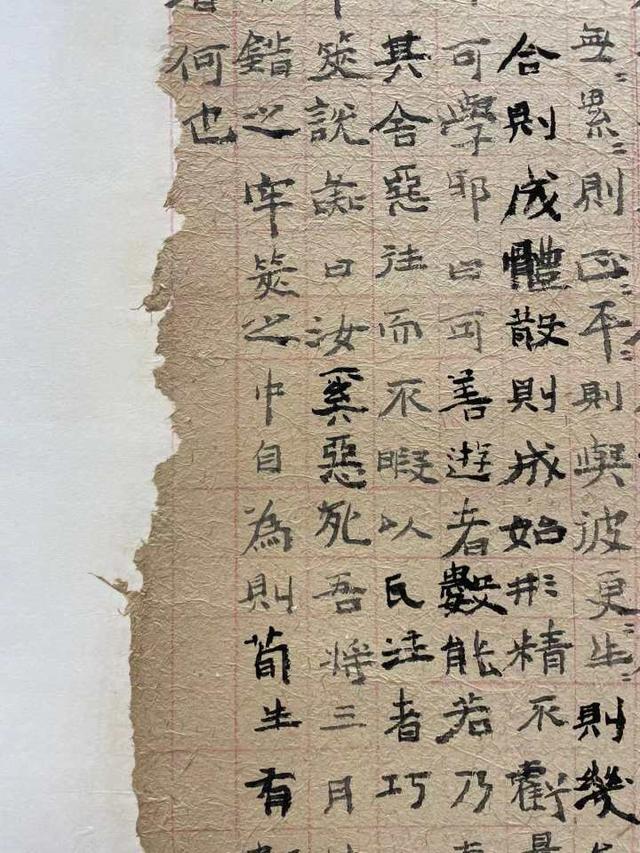 無〻累〻則正〻平〻則與彼更〻生〻則幾
合則成體散則成始形精不虧
可學邪曰可善遊者數能若乃
其舍惡往而不暇以瓦注者巧
筴說彘曰汝奚惡死吾將三月
錯之牢筴之中自為則苟生有
何也